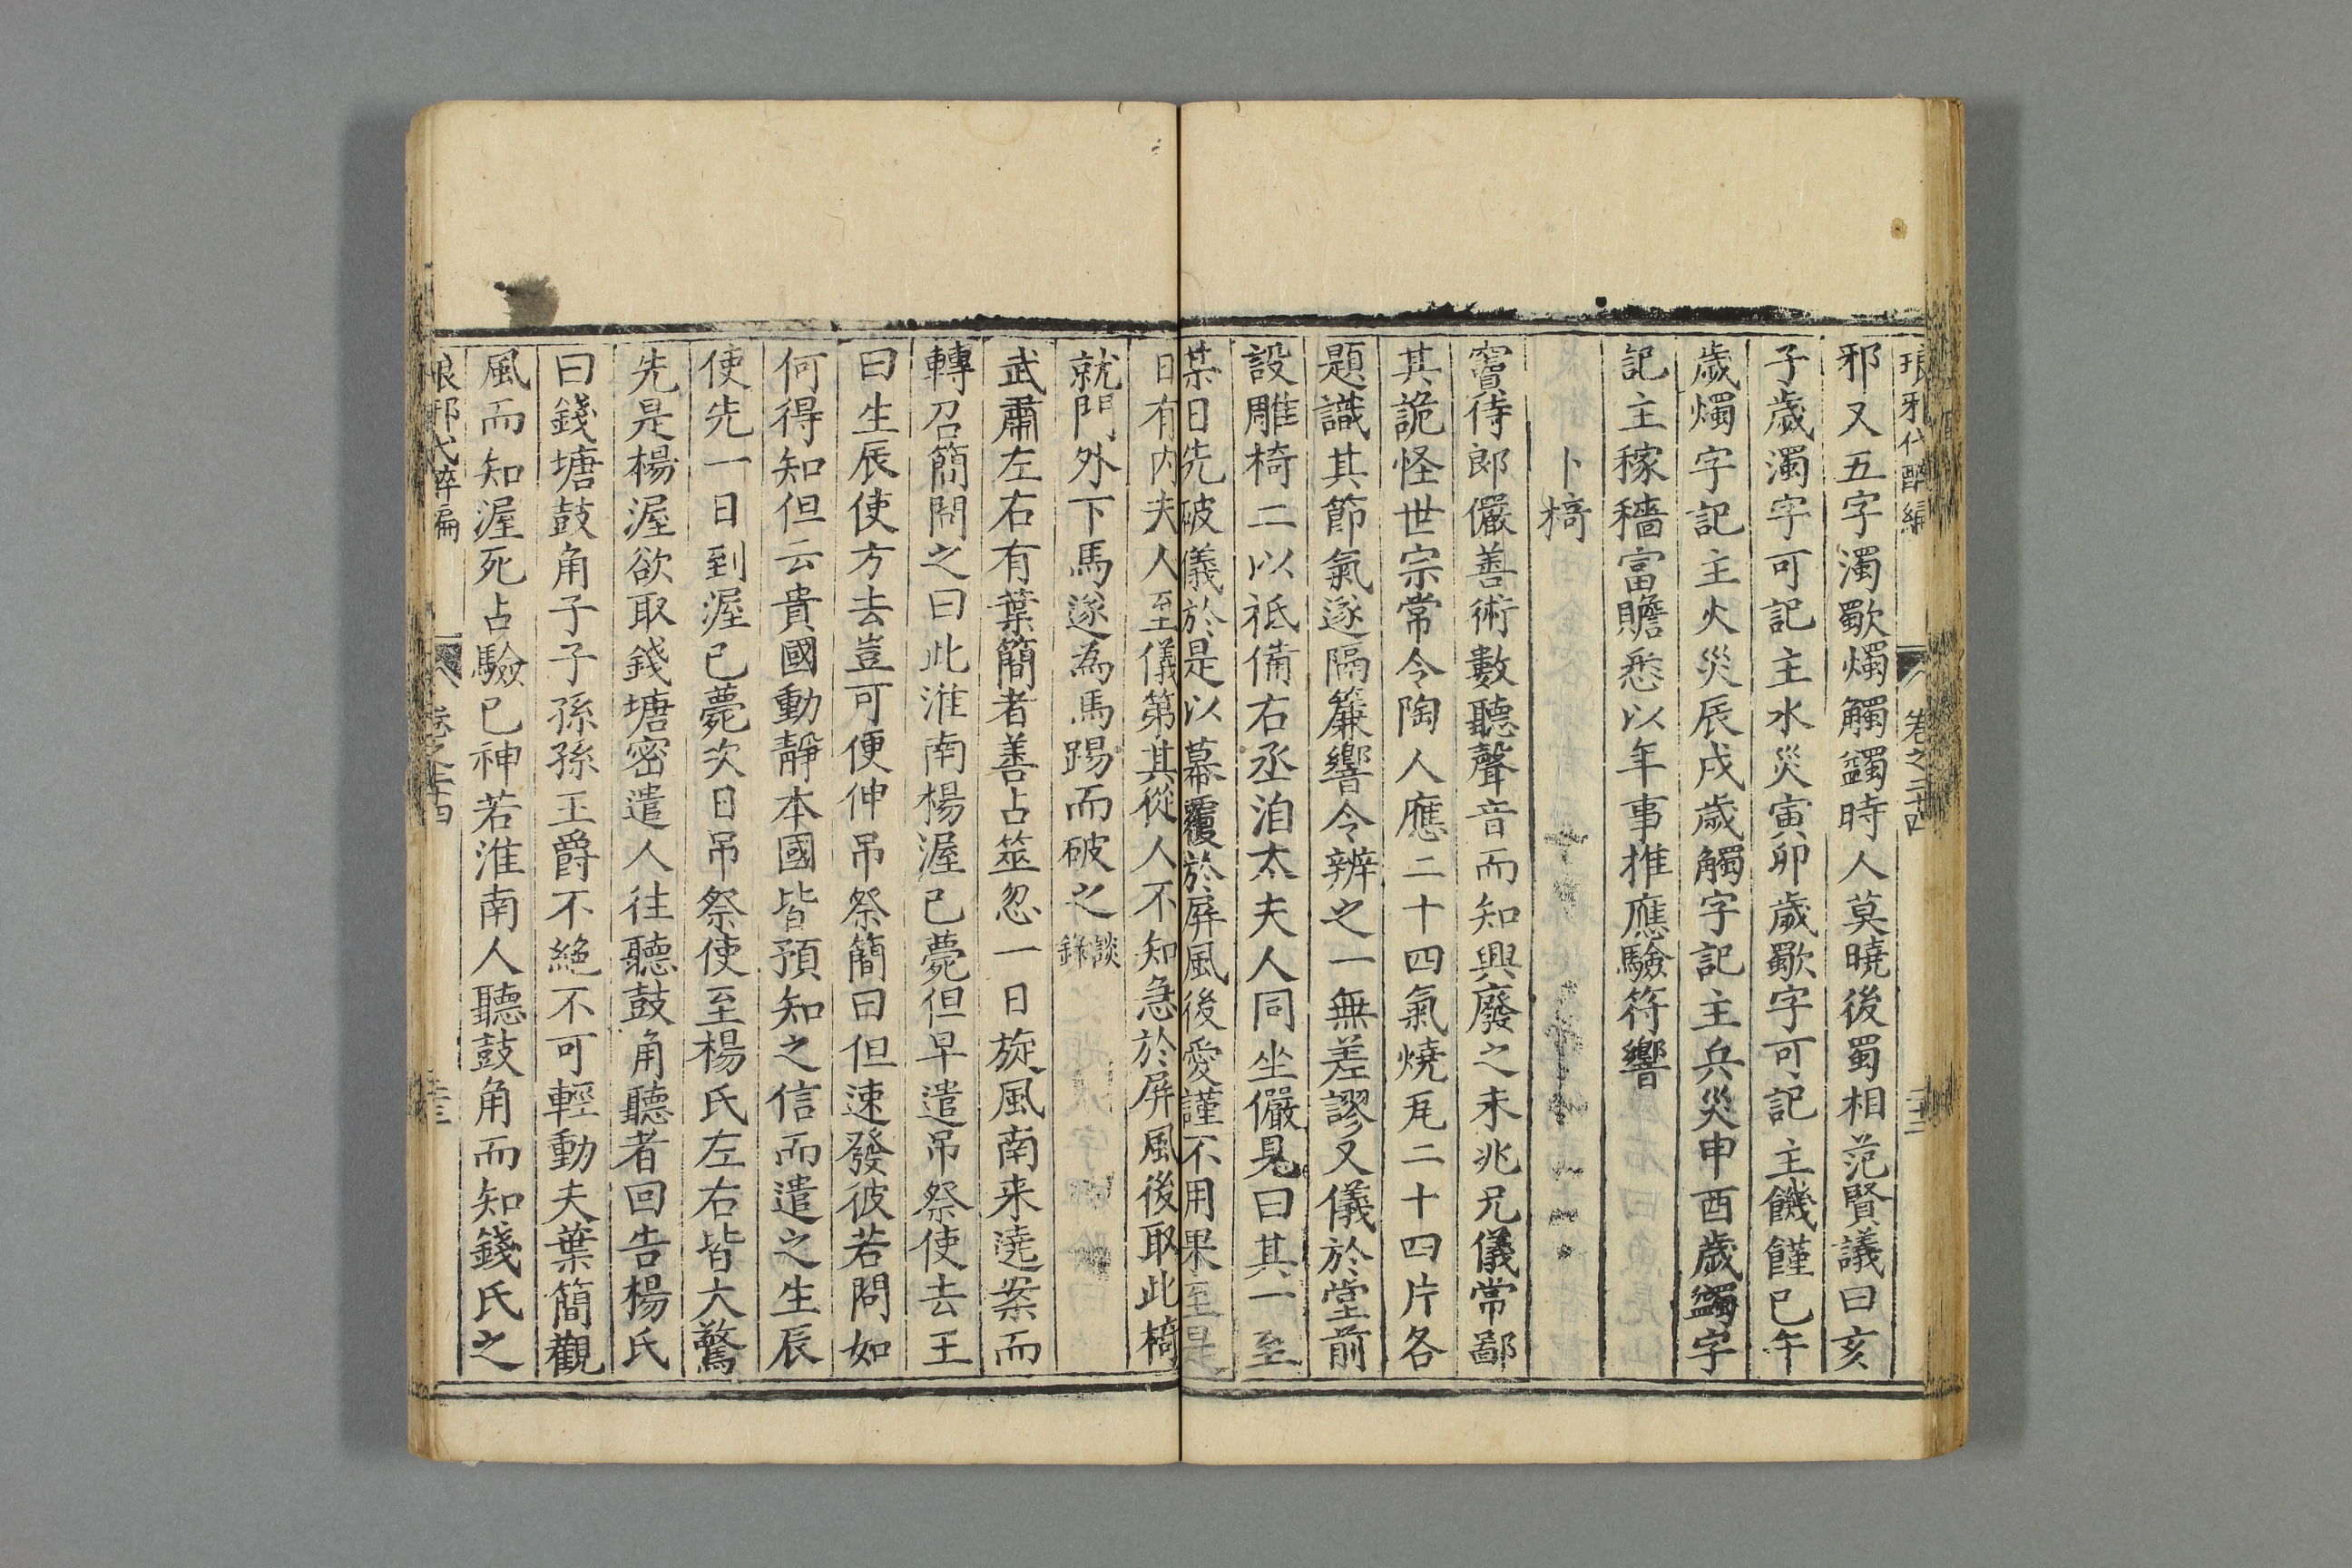 琅邪代醉編 卷之三十四 二十二
邪又五字濁歜燭觸蠲時人莫曉後蜀相范賢議曰亥
子歲濁字可記主水災寅卯歲歜字可記主饑饉巳午
歲燭字記主火災辰戌歲觸字記主兵災申酉歲蠲字
記主稼穡富贍悉以年事推應驗符響
卜椅
竇侍郎儼善術數聽聲音而知興廢之未兆兄儀常鄙
其詭怪世宗常令陶人應二十四氣燒瓦二十四片各
題識其節氣遂隔簾響令辨之一無差謬又儀於堂前
設雕椅二以祗備右丞洎太夫人同坐儼見曰其一至
某日先破儀於是以幕覆於屏風後愛謹不用果至是
日有內夫人至儀第其從人不知急於屏風後取此椅
就門外下馬遂為馬踢而破之談錄
武肅左右有葉簡者善占筮忽一日旋風南来遶案而
轉召簡問之曰此淮南楊渥已薨但早遣吊祭使去王
曰生辰使方去豈可便伸吊祭簡曰但速發彼若問如
何得知但云貴國動靜本國皆預知之信而遣之生辰
使先一日到渥已薨次日吊祭使至楊氏左右皆大驚
先是楊渥欲取錢塘密遣人往聽鼓角聽者回告楊氏
曰錢塘鼓角子子孫孫王爵不絕不可輕動夫葉簡觀
風而知渥死占驗已神若淮南人聽鼓角而知錢氏之
琅邪代醉編 卷之三十四